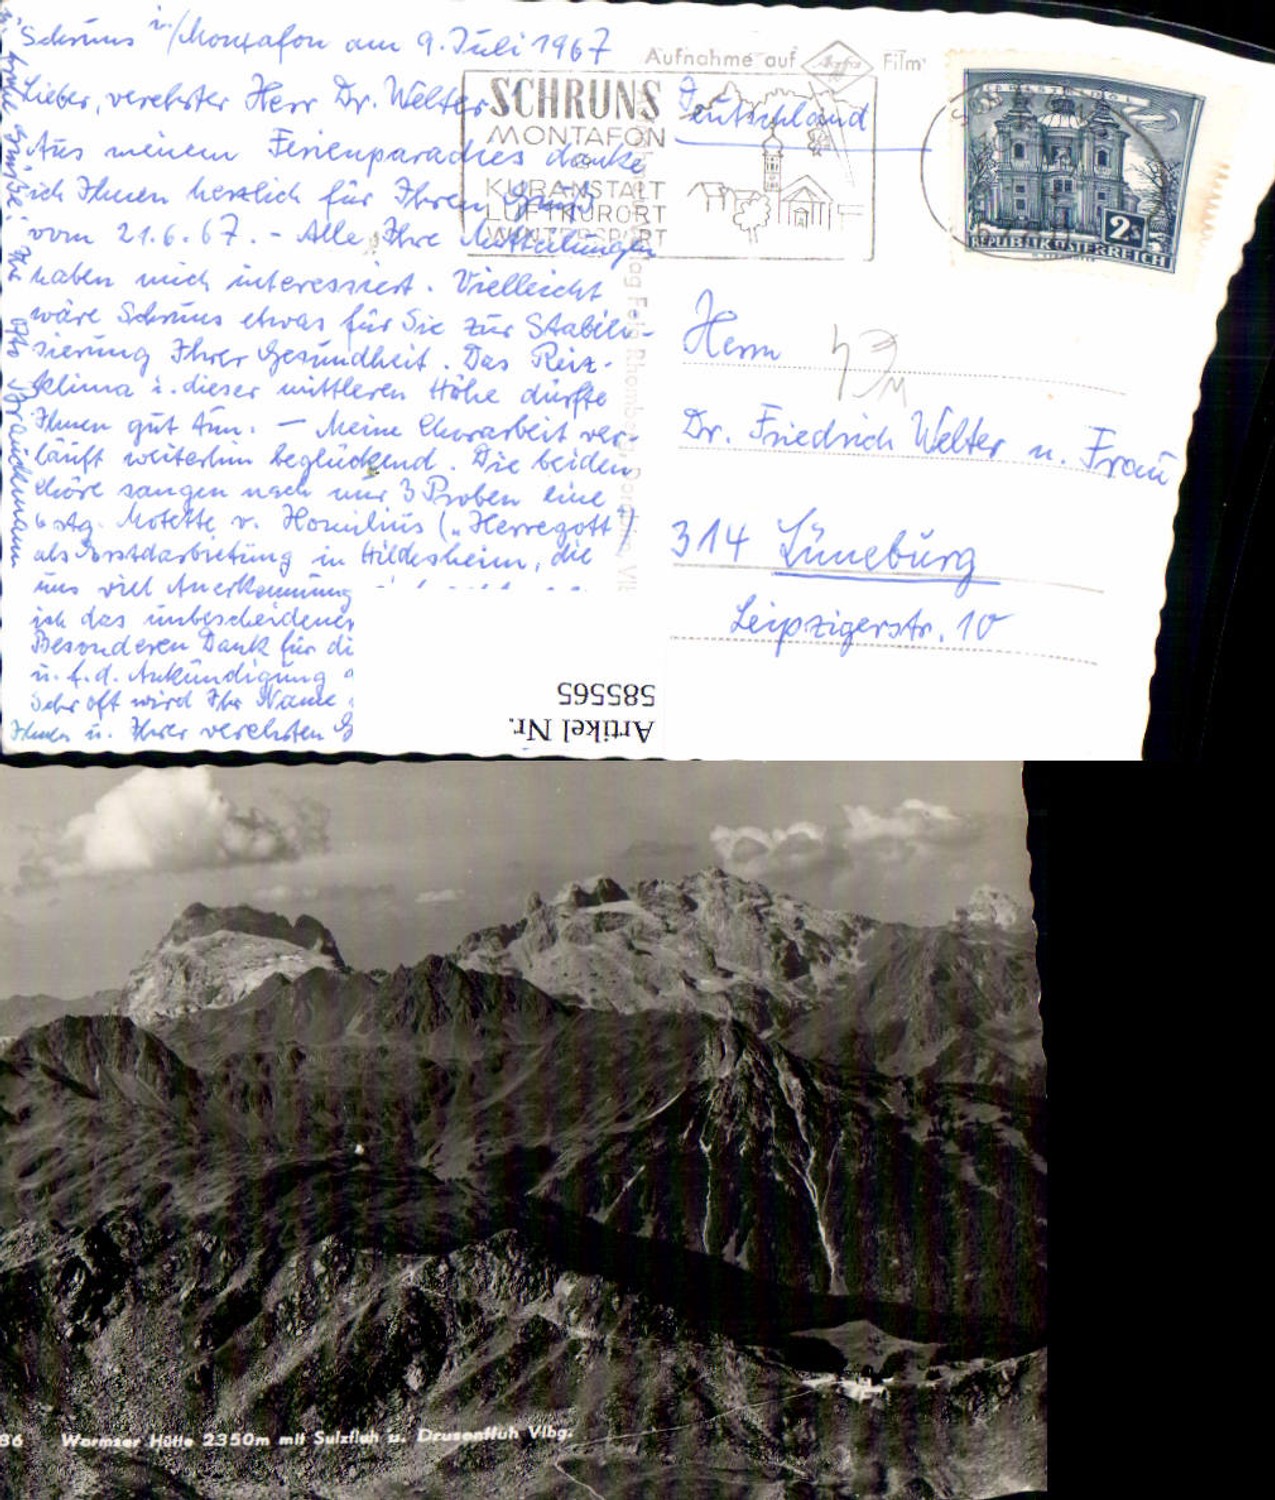 Schruns i./Montafon am 9. Juli 1967
Lieber, verehrter Herr Dr. Welter
Aus meinem Ferienparadies danke
ich Ihnen herzlich für Ihren Gruß
vom 21.6.67. - Alle Ihre Mitteilungen
haben mich interessiert. Vielleicht
wäre Schruns etwas für Sie zur Stabili-
sierung Ihrer Gesundheit. Das Reiz-
klima i. dieser mittleren Höhe dürfte
Ihnen gut tun. - Meine Chorarbeit ver-
läuft weiterhin beglückend. Die beiden
Chöre sangen nach nur 3 Proben eine
6 stg. Motette v. Homilius ("Herregott")
als Erstdarbietung in Hildesheim, die
uns viel Anerkennung
ich das unbescheidener
Besonderen Dank für di
u. f. d. Ankündigung
Sehr oft wird Ihr Name
Ihnen u. Ihrer verehrten
Ihr Otto Brauckmann
Aufnahme auf Agfa Film
SCHRUNS
MONTAFON
KURANSTALT
LUFTKURORT
WINTERSPORT
Deutschland
2 S
REPUBLIK ÖSTERREICH
Herrn
Dr. Friedrich Welter u. Frau
314 Lüneburg
Leipzigerstr. 10
Verlag Felg Rhomberg, Dornbirn, Vlb
Artikel Nr.
585565
86 Wormser Hütte 2350m mit Sulzfluh u. Drusenfluh Vlbg.